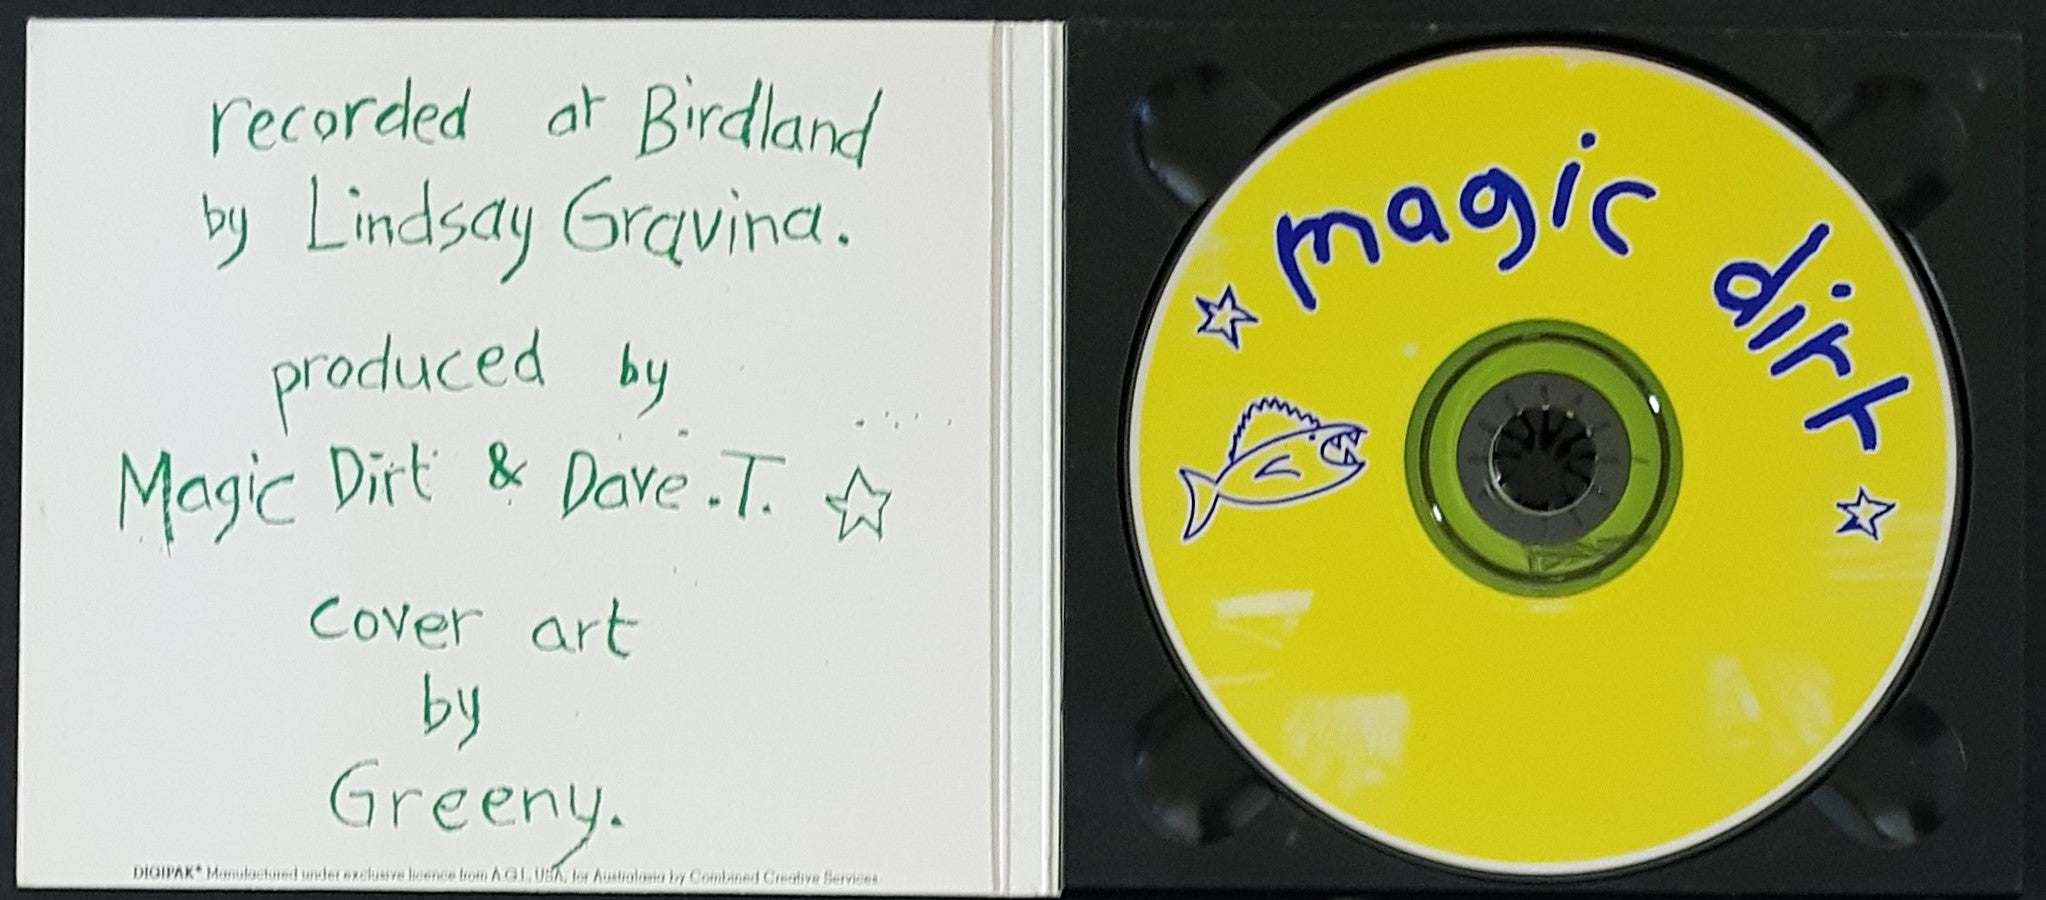 recorded at Birdland
by Lindsay Gravina.
produced by
Magic Dirt & Dave .T.
cover art
by
Greeny.
DIGIPAK® Manufactured under exclusive licence from A.G.I., USA, for Australasia by Combined Creative Services
magic dirt